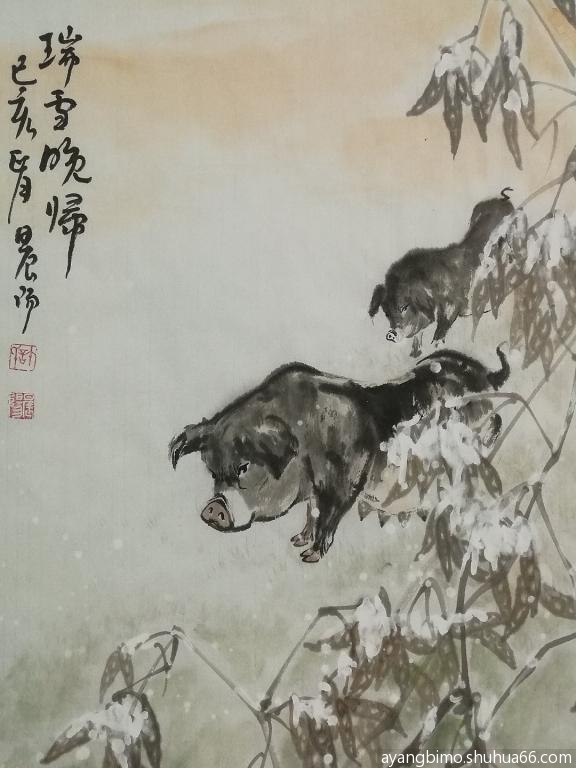 瑞雪晚归
己亥正月晨阳
ayangbimo.shuhua66.com